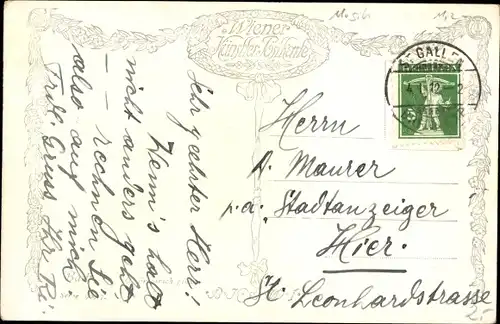 Musik
Wiener
Künstler-Eckkarte
ST. GALLEN
Sehr geehrter Herr!
Wenn's halt
nicht anders geht
– – rechnen Sie
also auf mich
Frdl. Gruss Ihr Ri.
Herrn
A. Maurer
p.a. Stadtanzeiger
Hier.
St. Leonhardstrasse
2.-